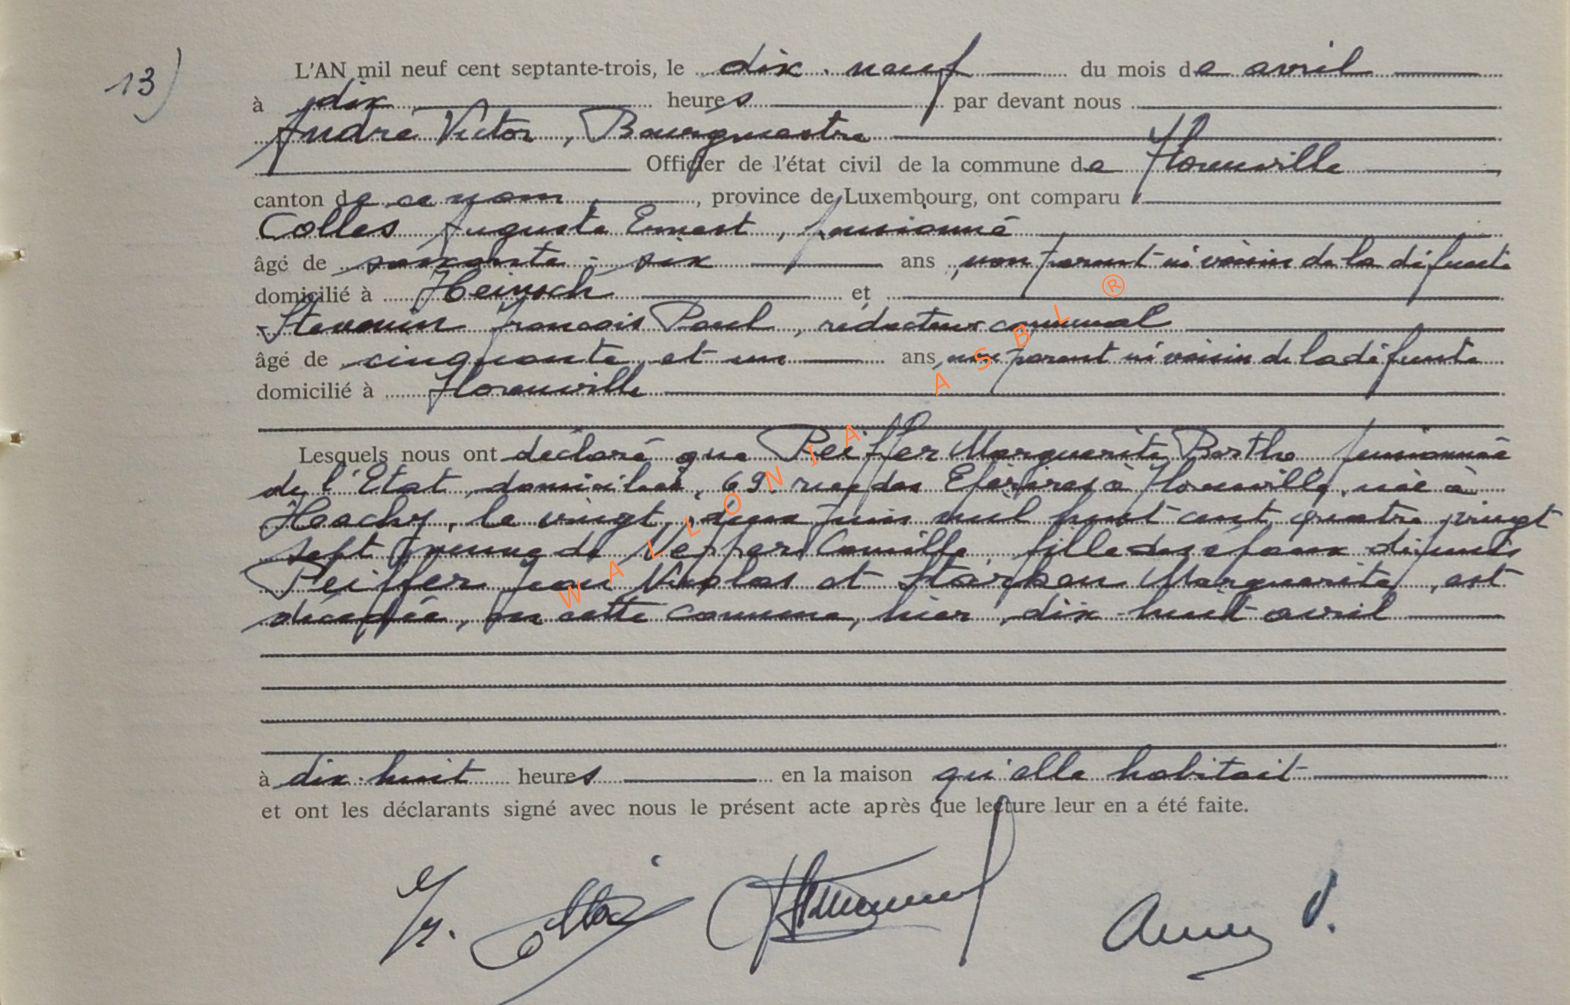 13)
L'AN mil neuf cent septante-trois, le dix-neuf du mois de avril
à dix heures par devant nous
André Victor, Bourgmestre
Officier de l'état civil de la commune de Florenville
canton de ce nom, province de Luxembourg, ont comparu
Colles Auguste Ernest, pensionné
âgé de soixante-six ans, non parent ni voisin de la défunte
domicilié à Heinsch et
François Paul, rédacteur communal
âgé de cinquante et un ans, non parent ni voisin de la défunte
domicilié à Florenville
Lesquels nous ont déclaré que Peiffer Marguerite Bertha pensionnée
de l'Etat, domiciliée, 69 rue des à Florenville, née à
Hachy, le vingt deux juin mil huit cent quatre vingt
sept, veuve de Camille fille des époux défunts
Peiffer Jean Nicolas et Marguerite, est
décédée, en cette commune, hier, dix-huit avril
à dix-huit heures en la maison qu'elle habitait
et ont les déclarants signé avec nous le présent acte après que lecture leur en a été faite.
WALLONIA ASBL ®